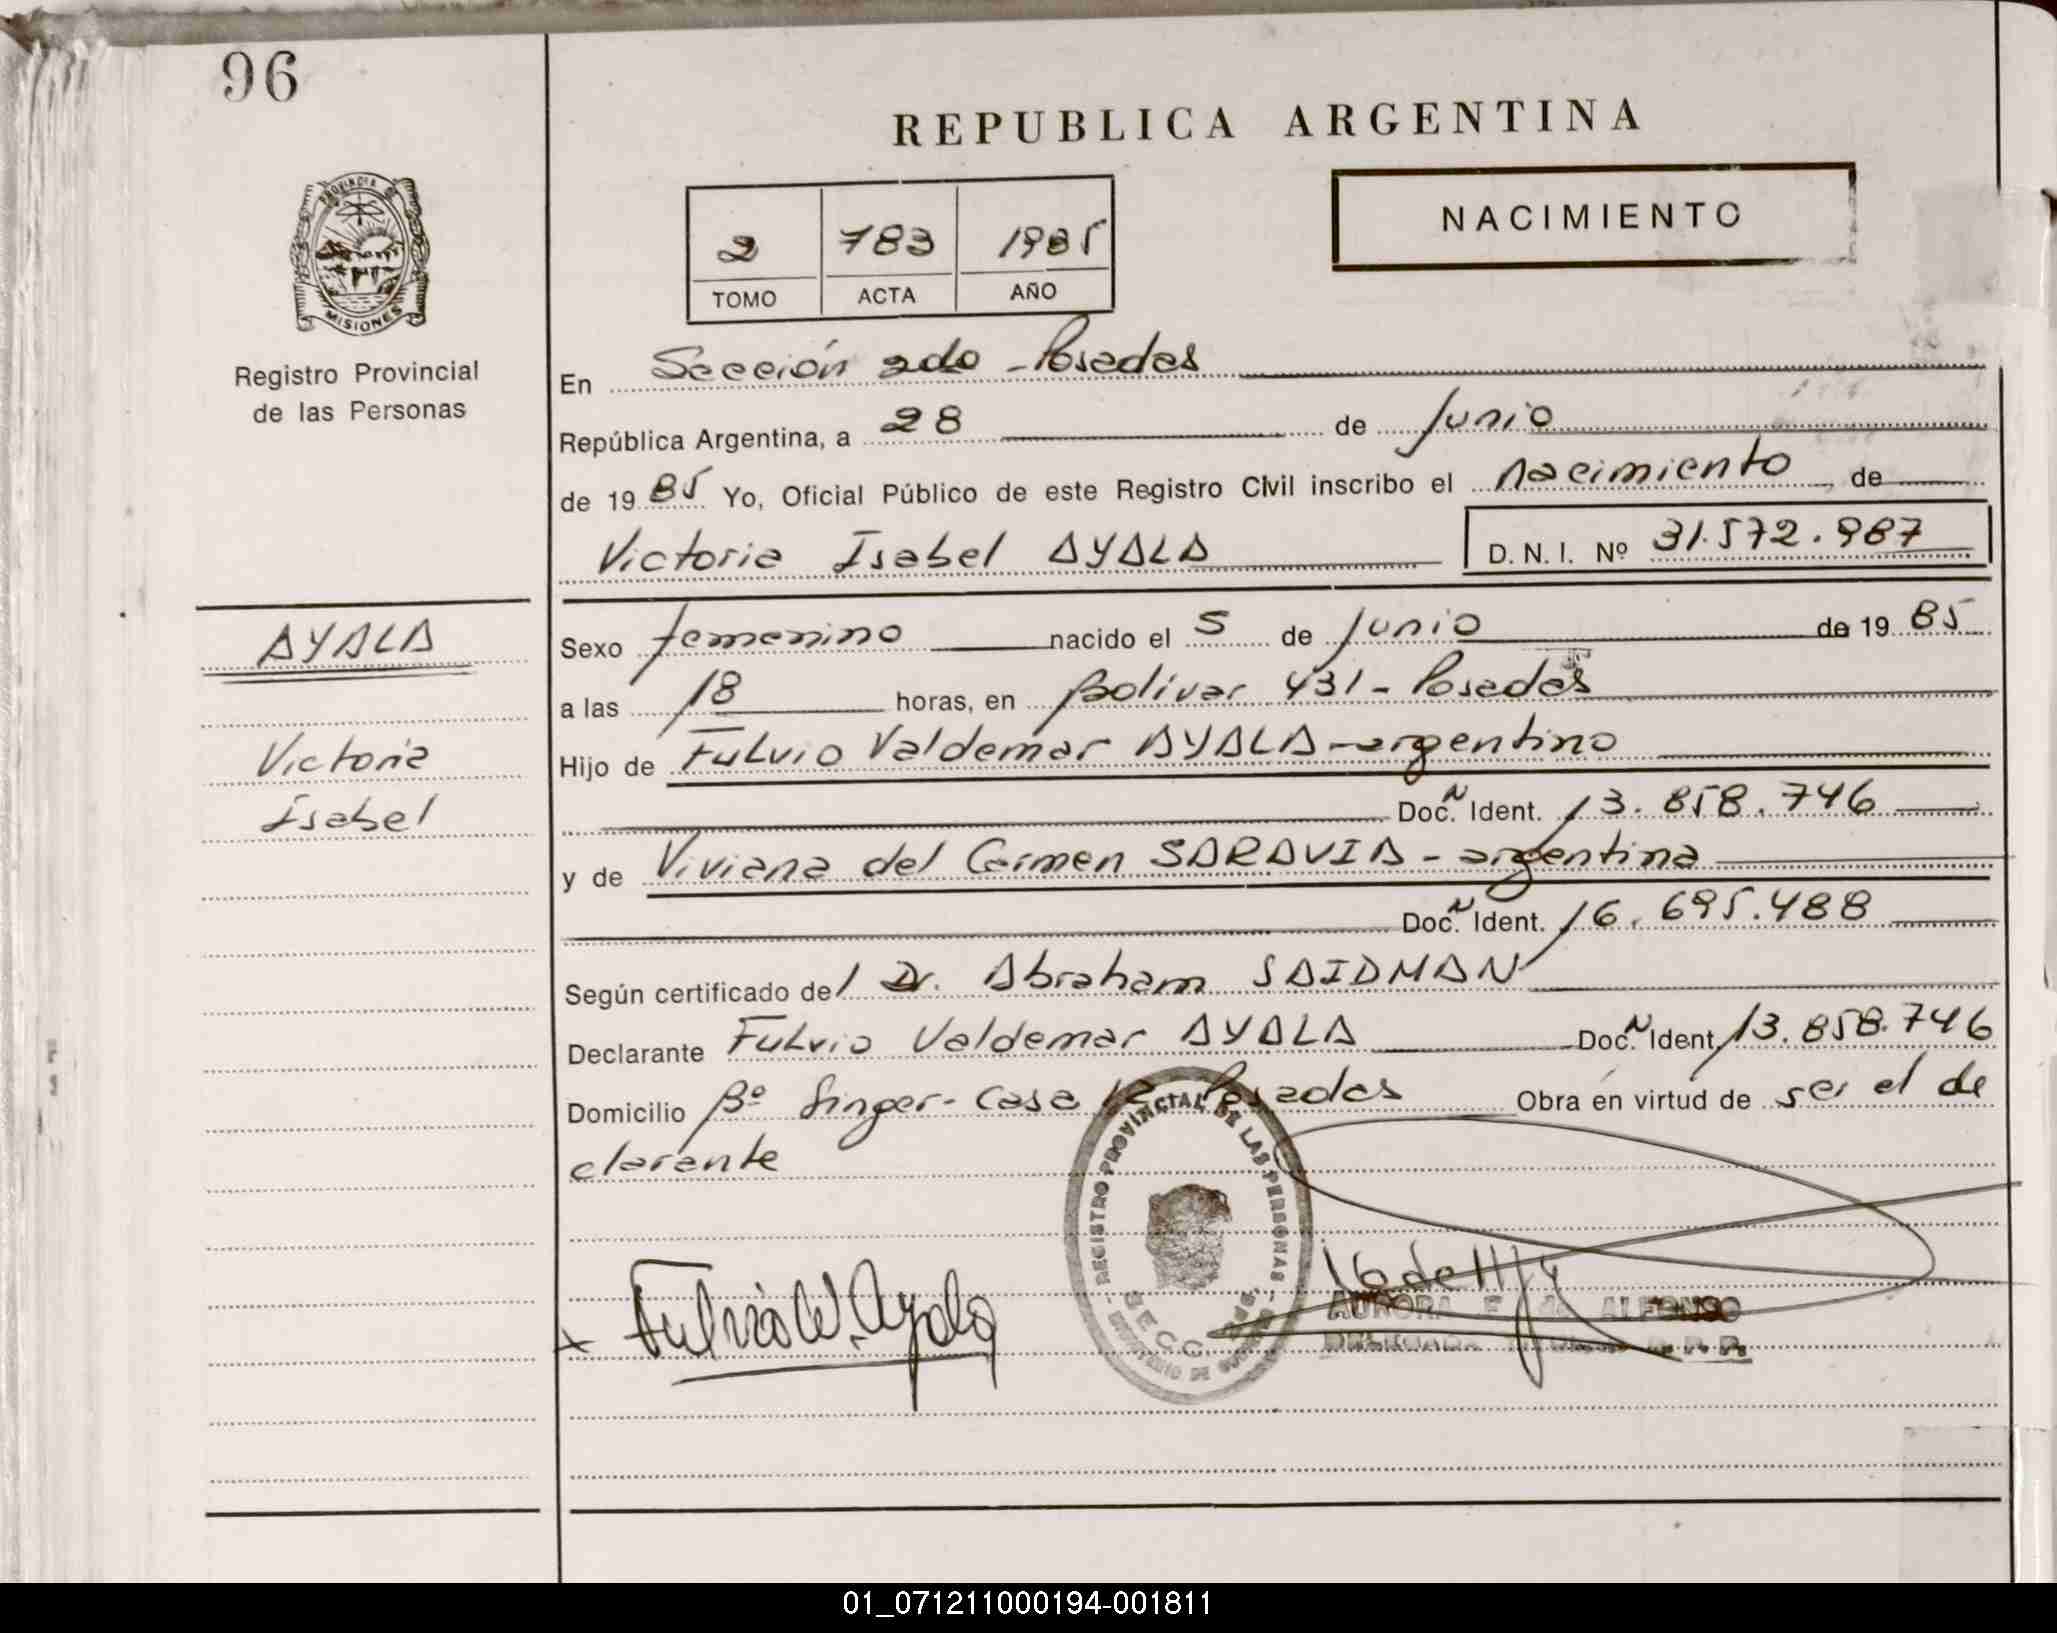 96
REPUBLICA ARGENTINA
PROVINCIA DE
MISIONES
Registro Provincial
de las Personas
2 783 1985
TOMO ACTA AÑO
NACIMIENTO
En Sección 2do - Posadas
República Argentina, a 28 de Junio
de 1985 Yo, Oficial Público de este Registro Civil inscribo el nacimiento, de
Victoria Isabel AYALA D.N.I. Nº 31.572.987
AYALA
Victoria
Isabel
Sexo femenino nacido el 5 de Junio de 1985
a las 18 horas, en Bolívar 431 - Posadas
Hijo de Fulvio Valdemar AYALA - argentino
Doc. Ident. 13.858.746
y de Viviana del Carmen SARAVIA - argentina
Doc. Ident. 16.695.488
Según certificado del Dr. Abraham SAIDMAN
Declarante Fulvio Valdemar AYALA Doc. Ident. 13.858.746
Domicilio Bº Singer - Casa Posadas Obra en virtud de ser el de
clarante
REGISTRO PROVINCIAL DE LAS PERSONAS
SECC
MINISTERIO DE
Fulvio W. Ayala
AURORA F. de ALFONSO
R.P.P.
01_071211000194-001811